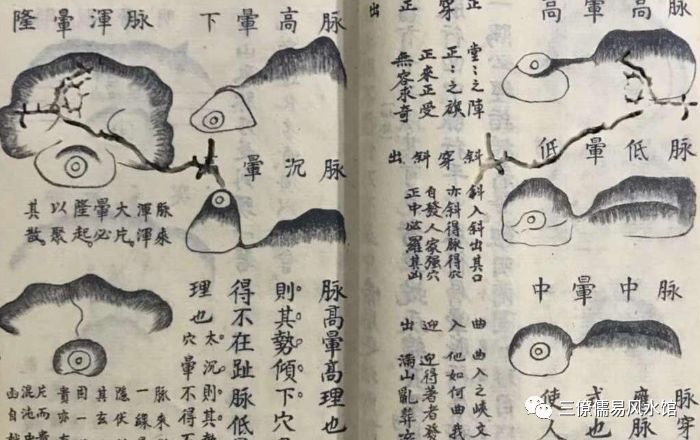 脈高暈高
脈低暈低
脈中暈中
正穿正出
堂〻之陣
正〻之旗
正來正受
無容求奇
斜穿斜出
斜入斜出其口
亦斜得脈得穴
自發人家強穴
正中必羅其凶
曲入迎出
曲入之峽文
他如何曲我
迎得著者發
滿山亂葬
脈穿
使人
脈高暈下
脈渾暈隆
脈沉暈
脈來渾渾大片暈必隆起以聚其散
脈高暈高理也
則其勢傾下穴
得不在趾脈低
理也
太沉則其
穴暈不得不
脈來
一線
隱伏
其玄
因一
貴亦
片而
混沌
三僚儒易风水馆